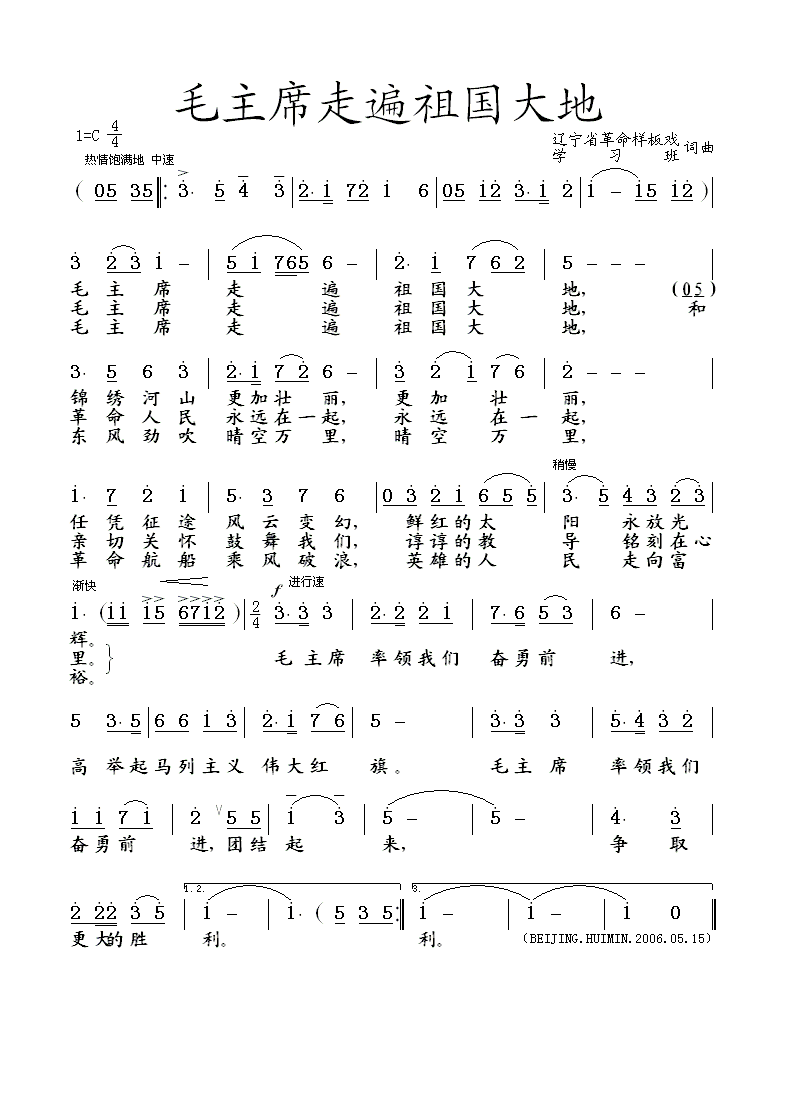 毛主席走遍祖国大地
1=C 4/4
辽宁省革命样板戏学习班 词曲
热情饱满地 中速
( 05 35 ‖: 3· 5 4 3 | 2· 1 72 1 6 | 05 12 3·1 2 | 1 – 15 12 ) |
3 23 1 – | 51 765 6 – | 2· 1 7 62 | 5 – – – |
毛 主 席 走 遍 祖 国 大 地, (05)
毛 主 席 走 遍 祖 国 大 地, 和
毛 主 席 走 遍 祖 国 大 地,
3· 5 6 3 | 2·1 72 6 – | 3 2 1 76 | 2 – – – |
锦 绣 河 山 更 加 壮 丽, 更 加 壮 丽,
革 命 人 民 永 远 在 一 起, 永 远 在 一 起,
东 风 劲 吹 晴 空 万 里, 晴 空 万 里,
稍慢
1· 7 2 1 | 5· 3 7 6 | 03 21 65 5 | 3· 5 43 23 |
任 凭 征 途 风 云 变 幻, 鲜 红 的 太 阳 永 放 光
亲 切 关 怀 鼓 舞 我 们, 谆 谆 的 教 导 铭 刻 在 心
革 命 航 船 乘 风 破 浪, 英 雄 的 人 民 走 向 富
渐快 f 进行速
1· (11 15 6712 ) | 2/4 3·3 3 | 2·2 21 | 7·6 53 | 6 – |
辉。
里。} 毛 主 席 率 领 我 们 奋 勇 前 进,
裕。
5 3·5 | 66 13 | 2·1 76 | 5 – | 3·3 3 | 5·4 32 |
高 举 起 马 列 主 义 伟 大 红 旗。 毛 主 席 率 领 我 们
11 71 | 2 V 55 | 1 3 | 5 – | 5 – | 4· 3 |
奋 勇 前 进, 团 结 起 来, 争 取
1.2. 3.
2 22 35 | 1 – | 1· ( 5 35 :‖ 1 – | 1 – | 1 0 ‖
更 大 的 胜 利。 利。 (BEIJING.HUIMIN.2006.05.15)